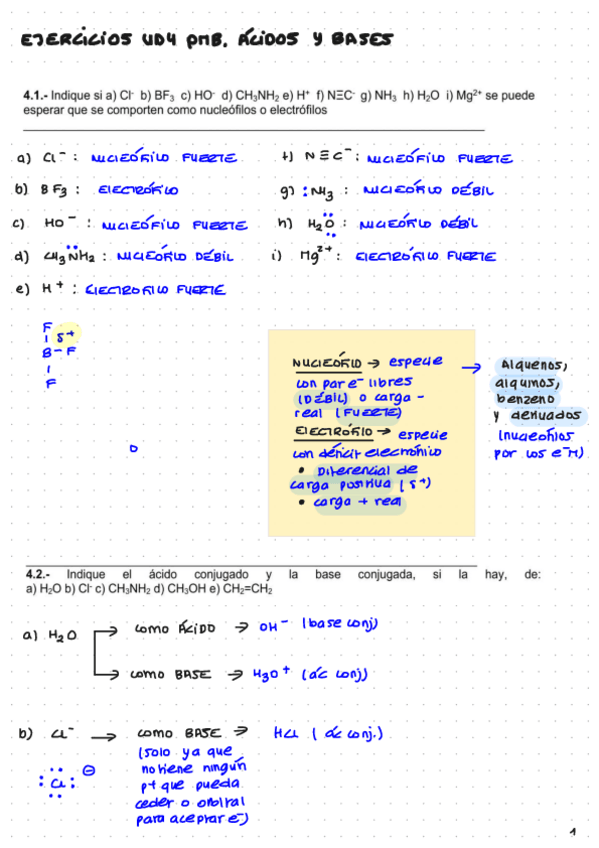 EJERCICIOS UD4 PMB. ÁCIDOS Y BASES
4.1.- Indique si a) Cl⁻ b) BF₃ c) HO⁻ d) CH₃NH₂ e) H⁺ f) NΞC⁻ g) NH₃ h) H₂O i) Mg²⁺ se puede
esperar que se comporten como nucleófilos o electrófilos
a) Cl⁻ : NUCLEÓFILO FUERTE
f) N≡C⁻ : NUCLEÓFILO FUERTE
b) BF₃ : ELECTRÓFILO
g) :NH₃ : NUCLEÓFILO DÉBIL
c) HO⁻ : NUCLEÓFILO FUERTE
h) H₂O : NUCLEÓFILO DÉBIL
d) CH₃NH₂ : NUCLEÓFILO DÉBIL
i) Mg²⁺ : ELECTRÓFILO FUERTE
e) H⁺ : ELECTROFILO FUERTE
F
δ⁺
B-F
F
NUCLEÓFILO → especie
con par e⁻ libres
(DÉBIL) o carga -
real (FUERTE)
ELECTRÓFILO → especie
con déficit electrónico
• Diferencial de
carga positiva (δ⁺)
• carga + real
→ Alquenos,
alquinos,
benzeno
y derivados
(nucleófilos
por los e⁻π)
4.2.- Indique el ácido conjugado y la base conjugada, si la hay, de:
a) H₂O b) Cl⁻ c) CH₃NH₂ d) CH₃OH e) CH₂=CH₂
a) H₂O
→ como ÁCIDO → OH⁻ (base conj)
→ como BASE → H₃O⁺ (ác conj)
b) Cl⁻ → como BASE → HCl (ác conj.)
(solo ya que
no tiene ningún
p+ que pueda
ceder o orbital
para aceptar e⁻)
:Cl: ⊖
1